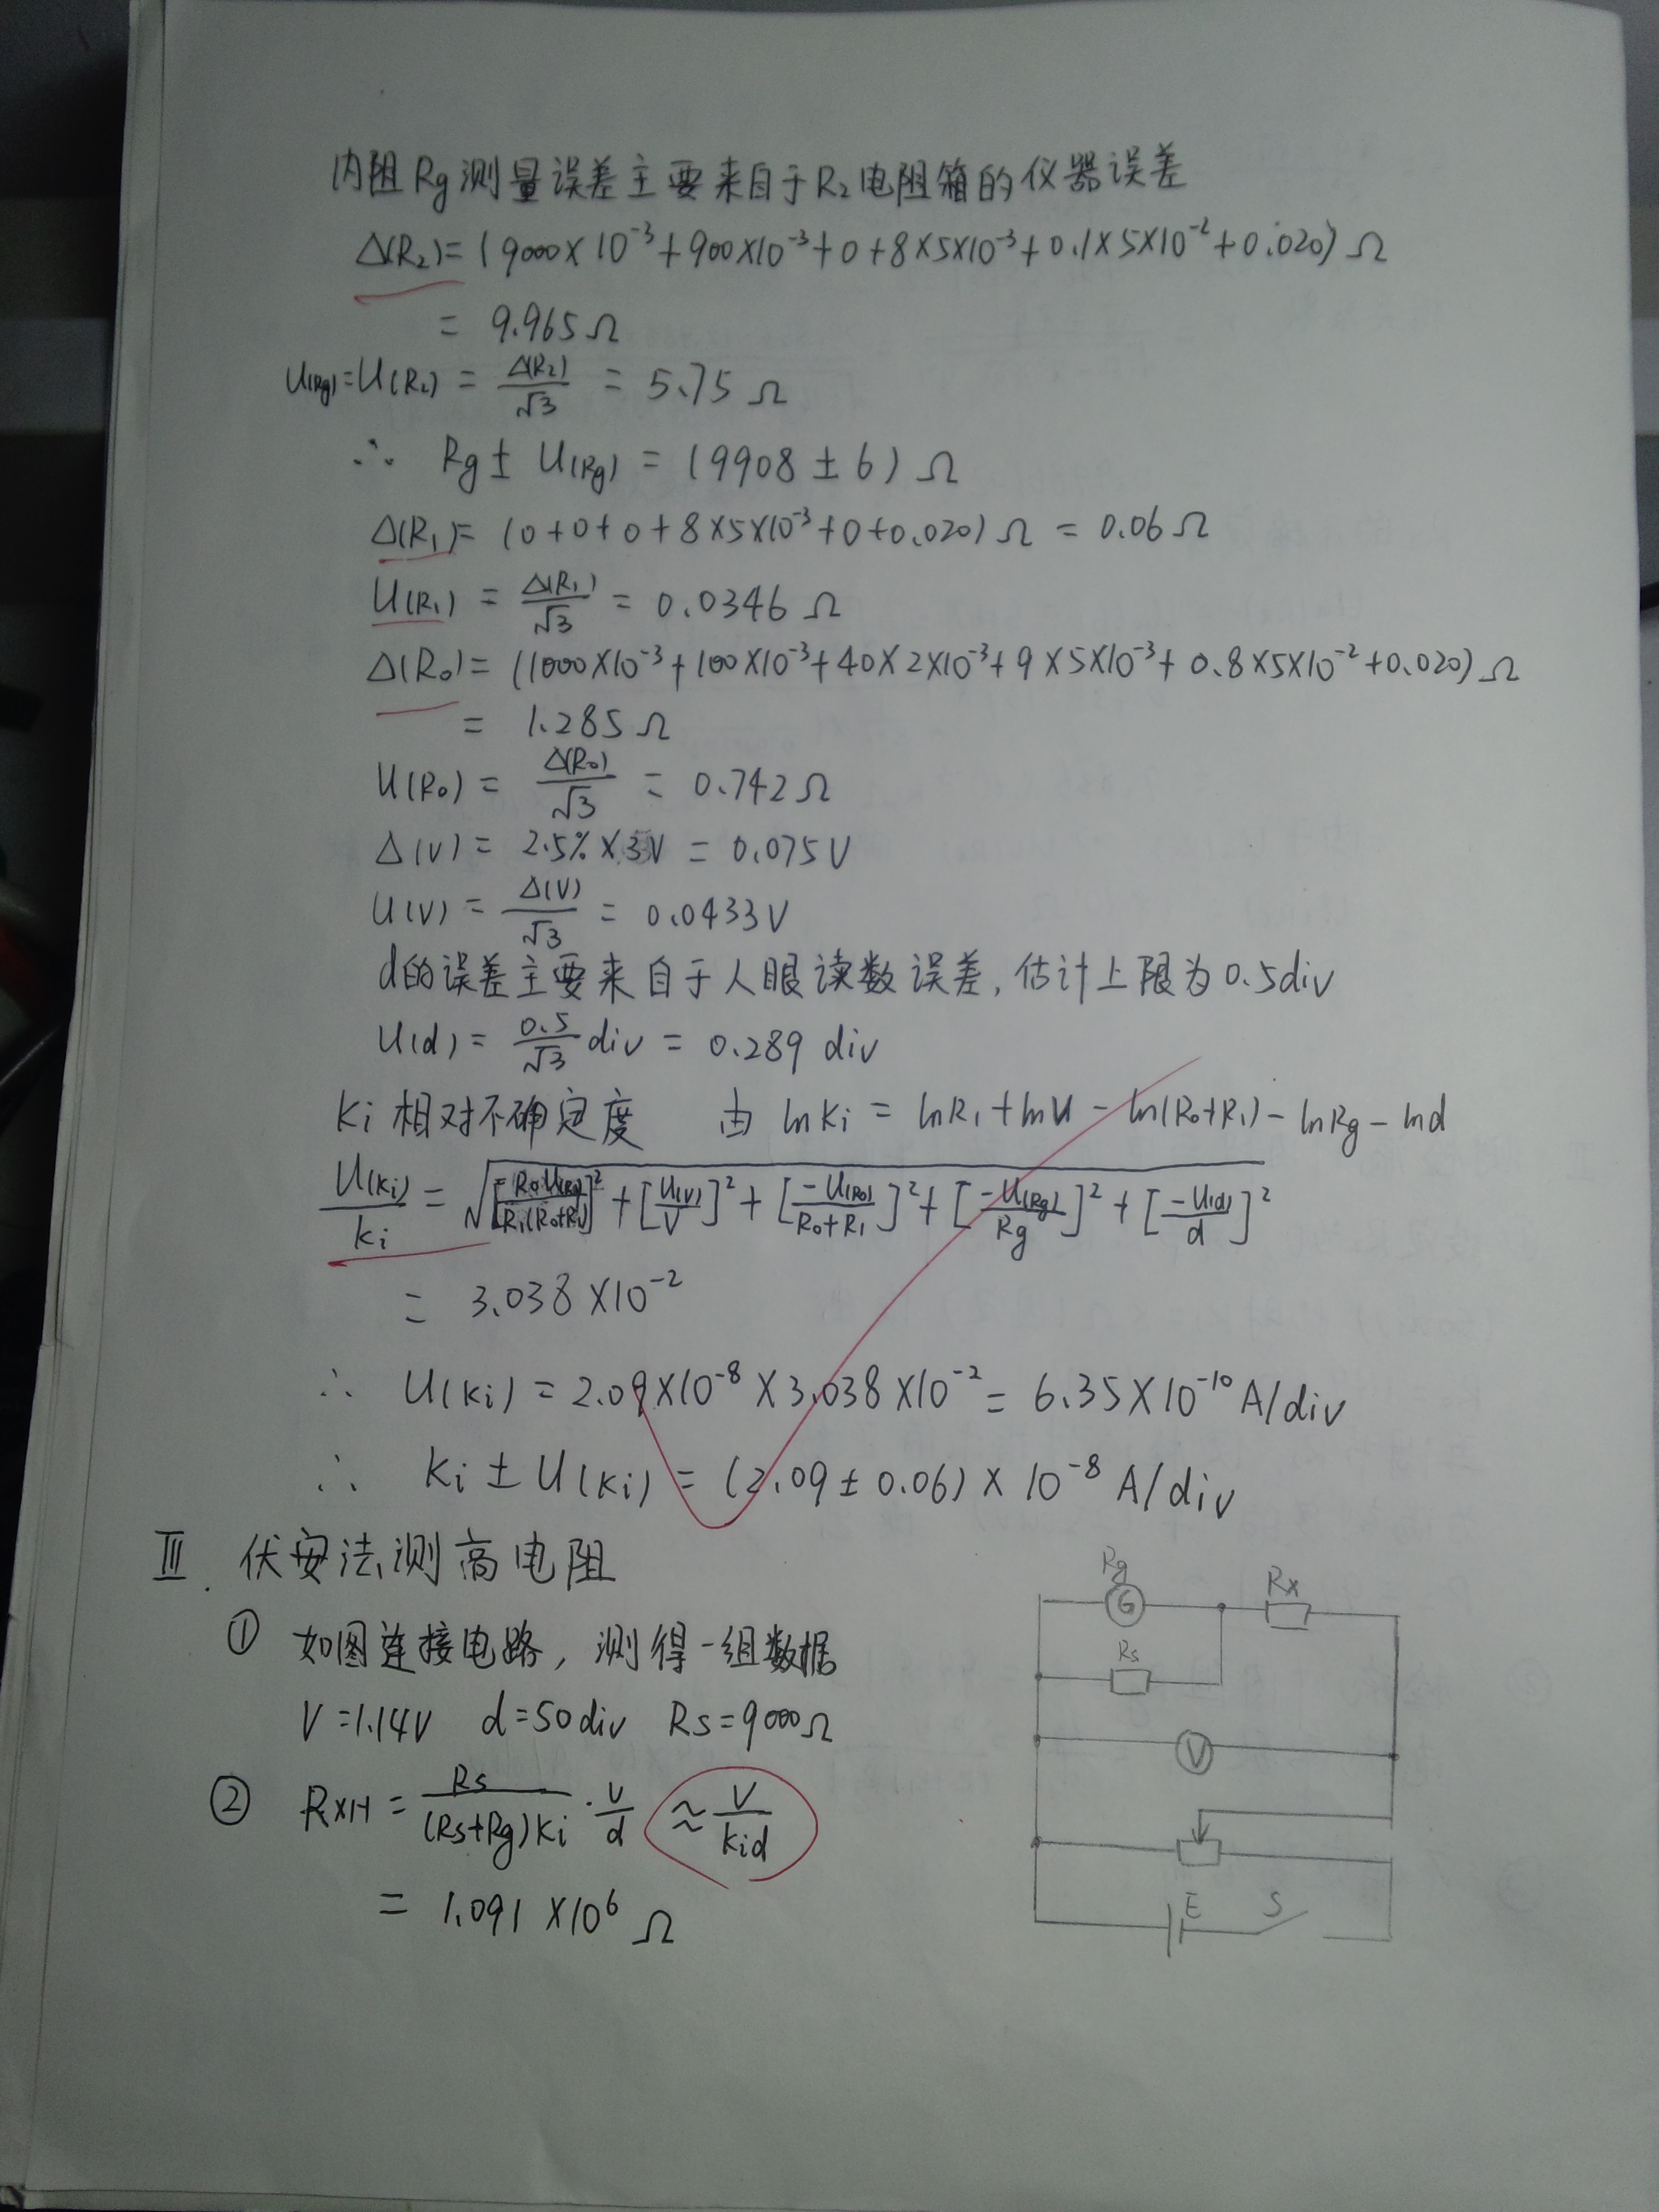 内阻Rg测量误差主要来自于R₂电阻箱的仪器误差
Δ(R₂)=(9000×10⁻³+900×10⁻³+0+8×5×10⁻³+0.1×5×10⁻²+0.020)Ω
= 9.965Ω
U(Rg)=U(R₂) = Δ(R₂)/√3 = 5.75 Ω
∴ Rg ± U(Rg) = (9908 ± 6) Ω
Δ(R₁)= (0+0+0+8×5×10⁻³+0+0.020)Ω = 0.06Ω
U(R₁) = Δ(R₁)/√3 = 0.0346 Ω
Δ(R₀)= (1000×10⁻³+100×10⁻³+40×2×10⁻³+9×5×10⁻³+0.8×5×10⁻²+0.020)Ω
= 1.285Ω
U(R₀) = Δ(R₀)/√3 = 0.742Ω
Δ(V) = 2.5%×3V = 0.075V
U(V) = Δ(V)/√3 = 0.0433V
d的误差主要来自于人眼读数误差,估计上限为0.5div
U(d) = 0.5/√3 div = 0.289 div
Ki相对不确定度 由 lnKi = lnR₁+lnU-ln(R₀+R₁)-lnRg-lnd
U(Ki)/Ki = √([R₀U(R₁)/R₁(R₀+R₁)]²+[U(V)/V]²+[-U(R₀)/R₀+R₁]²+[-U(Rg)/Rg]²+[-U(d)/d]²)
= 3.038×10⁻²
∴ U(Ki) = 2.09×10⁻⁸×3.038×10⁻² = 6.35×10⁻¹⁰A/div
∴ Ki ± U(Ki) = (2.09±0.06)×10⁻⁸ A/div
Ⅲ. 伏安法测高电阻
① 如图连接电路,测得一组数据
V=1.14V d=50div Rs=9000Ω
② RxH = Rs/(Rs+Rg)Ki · V/d ≈ V/Kid
= 1.091×10⁶Ω
Rg
G
Rx
Rs
V
E
S